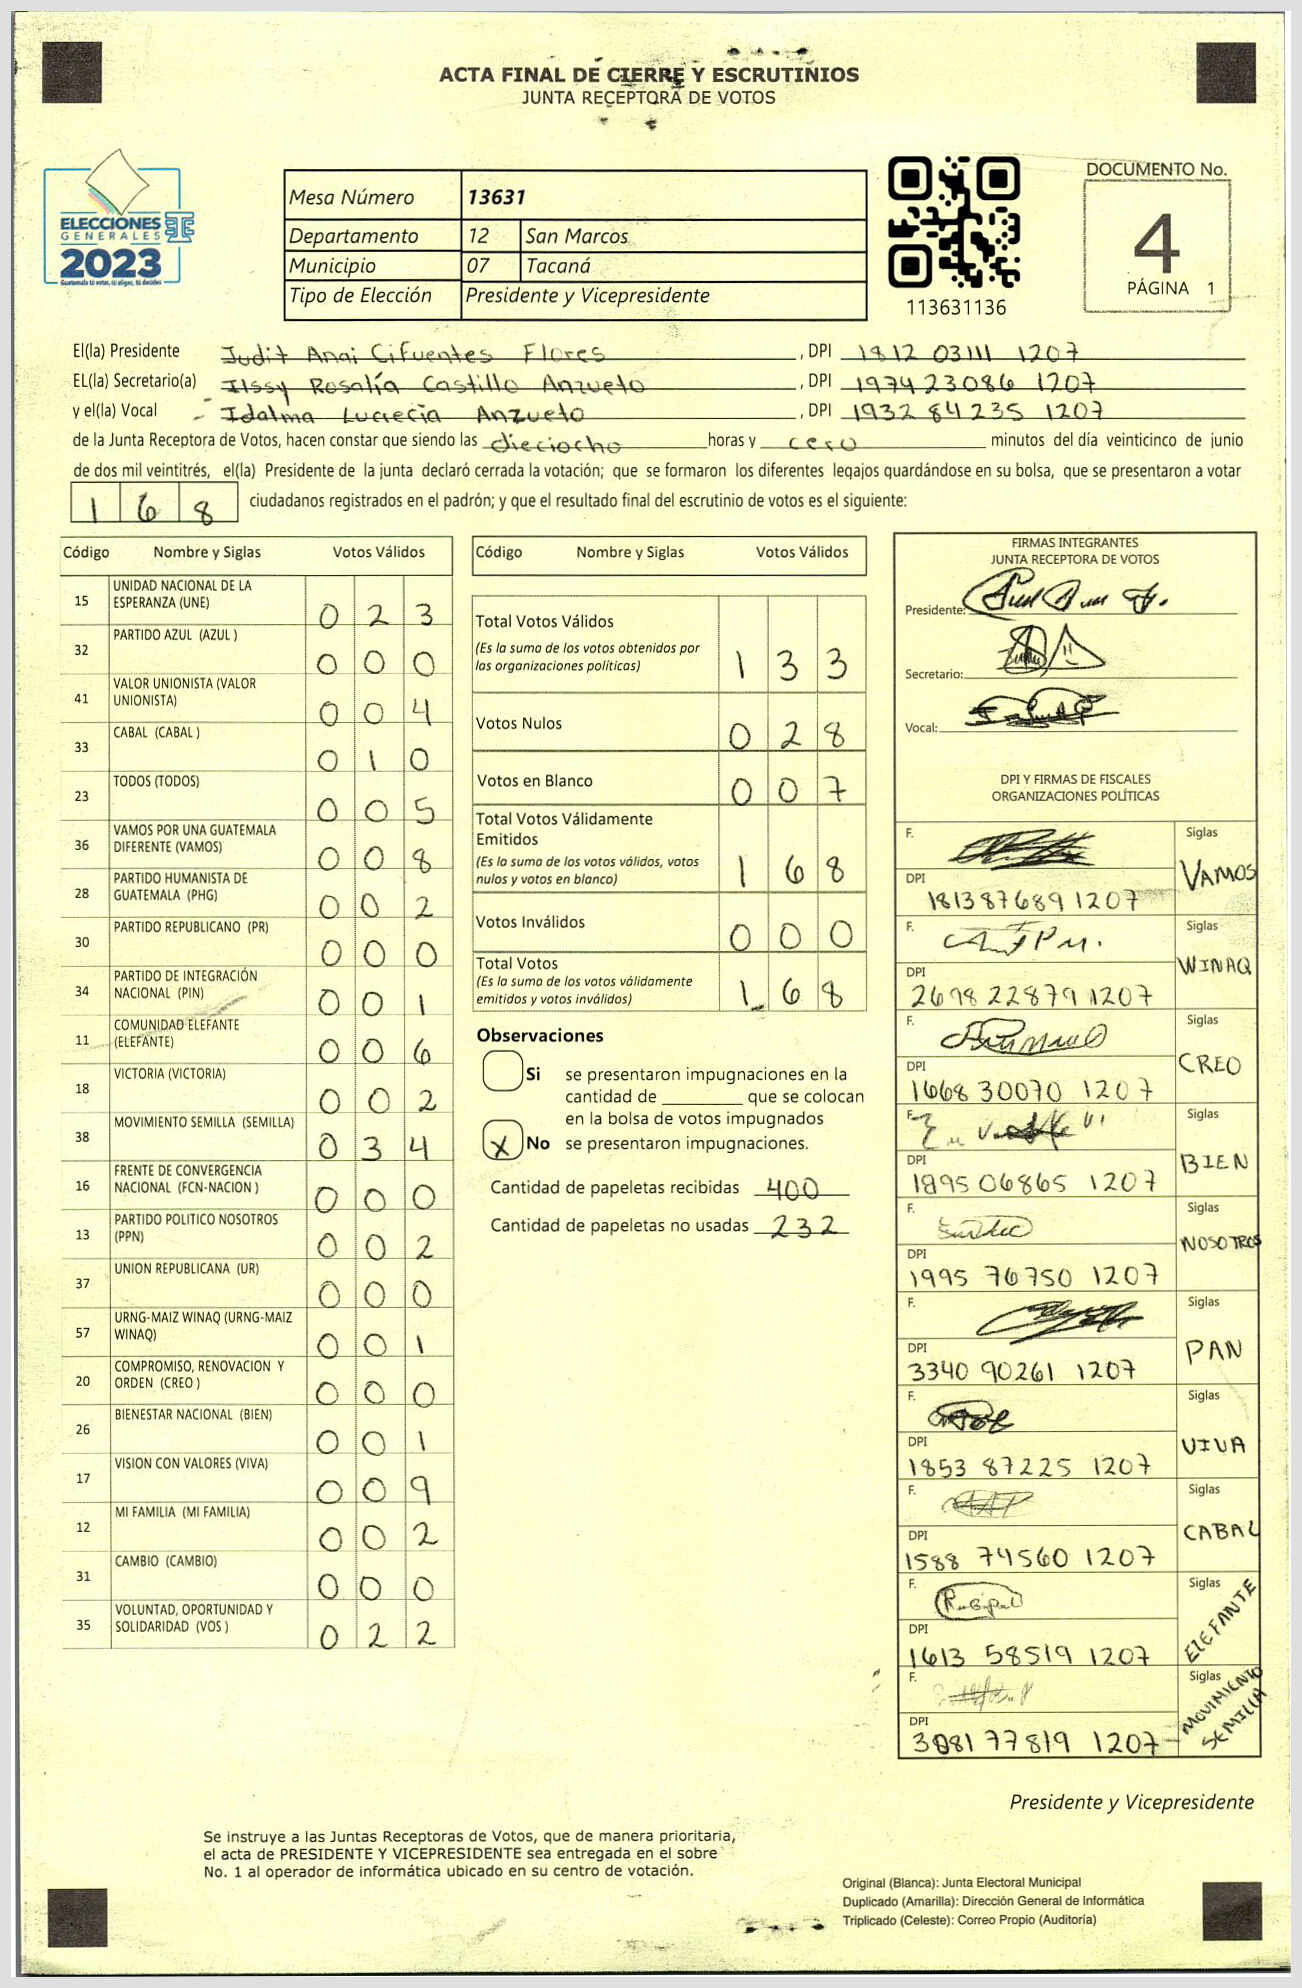 ACTA FINAL DE CIERRE Y ESCRUTINIOS
JUNTA RECEPTORA DE VOTOS
ELECCIONES
GENERALES
2023
Guatemala tú votas, tú eliges, tú decides
Mesa Número 13631
Departamento 12 San Marcos
Municipio 07 Tacaná
Tipo de Elección Presidente y Vicepresidente
113631136
DOCUMENTO No.
4
PÁGINA 1
El(la) Presidente Judit Anai Cifuentes Flores, DPI 1812 03111 1207
EL(la) Secretario(a) Ilssy Rosalía Castillo Anzueto, DPI 1974 23086 1207
y el(la) Vocal Idalma Lucrecia Anzueto, DPI 1932 84235 1207
de la Junta Receptora de Votos, hacen constar que siendo las dieciocho horas y cero minutos del día veinticinco de junio
de dos mil veintitrés, el(la) Presidente de la junta declaró cerrada la votación; que se formaron los diferentes legajos guardándose en su bolsa, que se presentaron a votar
168 ciudadanos registrados en el padrón; y que el resultado final del escrutinio de votos es el siguiente:
Código Nombre y Siglas Votos Válidos
15 UNIDAD NACIONAL DE LA
ESPERANZA (UNE) 0 2 3
32 PARTIDO AZUL (AZUL ) 0 0 0
41 VALOR UNIONISTA (VALOR
UNIONISTA) 0 0 4
33 CABAL (CABAL ) 0 1 0
23 TODOS (TODOS) 0 0 5
36 VAMOS POR UNA GUATEMALA
DIFERENTE (VAMOS) 0 0 8
28 PARTIDO HUMANISTA DE
GUATEMALA (PHG) 0 0 2
30 PARTIDO REPUBLICANO (PR) 0 0 0
34 PARTIDO DE INTEGRACIÓN
NACIONAL (PIN) 0 0 1
11 COMUNIDAD ELEFANTE
(ELEFANTE) 0 0 6
18 VICTORIA (VICTORIA) 0 0 2
38 MOVIMIENTO SEMILLA (SEMILLA) 0 3 4
16 FRENTE DE CONVERGENCIA
NACIONAL (FCN-NACION ) 0 0 0
13 PARTIDO POLITICO NOSOTROS
(PPN) 0 0 2
37 UNION REPUBLICANA (UR) 0 0 0
57 URNG-MAIZ WINAQ (URNG-MAIZ
WINAQ) 0 0 1
20 COMPROMISO, RENOVACION Y
ORDEN (CREO ) 0 0 0
26 BIENESTAR NACIONAL (BIEN) 0 0 1
17 VISION CON VALORES (VIVA) 0 0 9
12 MI FAMILIA (MI FAMILIA) 0 0 2
31 CAMBIO (CAMBIO) 0 0 0
35 VOLUNTAD, OPORTUNIDAD Y
SOLIDARIDAD (VOS ) 0 2 2
Código Nombre y Siglas Votos Válidos
Total Votos Válidos
(Es la suma de los votos obtenidos por
las organizaciones políticas) 1 3 3
Votos Nulos 0 2 8
Votos en Blanco 0 0 7
Total Votos Válidamente
Emitidos
(Es la suma de los votos válidos, votos
nulos y votos en blanco) 1 6 8
Votos Inválidos 0 0 0
Total Votos
(Es la suma de los votos válidamente
emitidos y votos inválidos) 1 6 8
Observaciones
Si se presentaron impugnaciones en la
cantidad de ________ que se colocan
en la bolsa de votos impugnados
X No se presentaron impugnaciones.
Cantidad de papeletas recibidas 400
Cantidad de papeletas no usadas 232
FIRMAS INTEGRANTES
JUNTA RECEPTORA DE VOTOS
Presidente:
Secretario:
Vocal:
DPI Y FIRMAS DE FISCALES
ORGANIZACIONES POLÍTICAS
F. Siglas
VAMOS
DPI
1813876891207
F. Siglas
WINAQ
DPI
2698 22879 1207
F. Siglas
CREO
DPI
1668 30070 1207
F. Siglas
BIEN
DPI
1895 06865 1207
F. Siglas
NOSOTROS
DPI
1995 76750 1207
F. Siglas
PAN
DPI
3340 90261 1207
F. Siglas
VIVA
DPI
1853 87225 1207
F. Siglas
CABAL
DPI
1588 74560 1207
F. Siglas
ELEFANTE
DPI
1613 58519 1207
F. Siglas
MOVIMIENTO
SEMILLA
DPI
3081 77819 1207
Presidente y Vicepresidente
Se instruye a las Juntas Receptoras de Votos, que de manera prioritaria,
el acta de PRESIDENTE Y VICEPRESIDENTE sea entregada en el sobre
No. 1 al operador de informática ubicado en su centro de votación.
Original (Blanca): Junta Electoral Municipal
Duplicado (Amarilla): Dirección General de Informática
Triplicado (Celeste): Correo Propio (Auditoría)